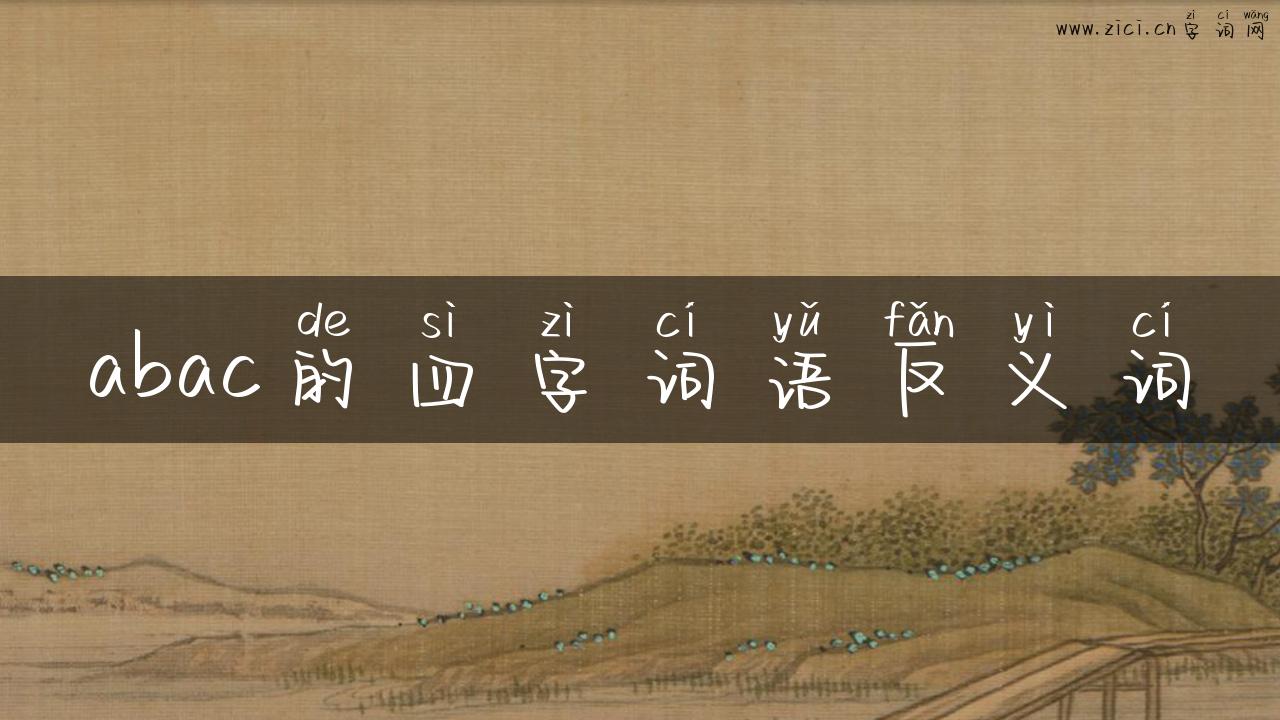 zì cí wǎng
www.zici.cn字词网
de sì zì cí yǔ fǎn yì cí
abac的四字词语反义词